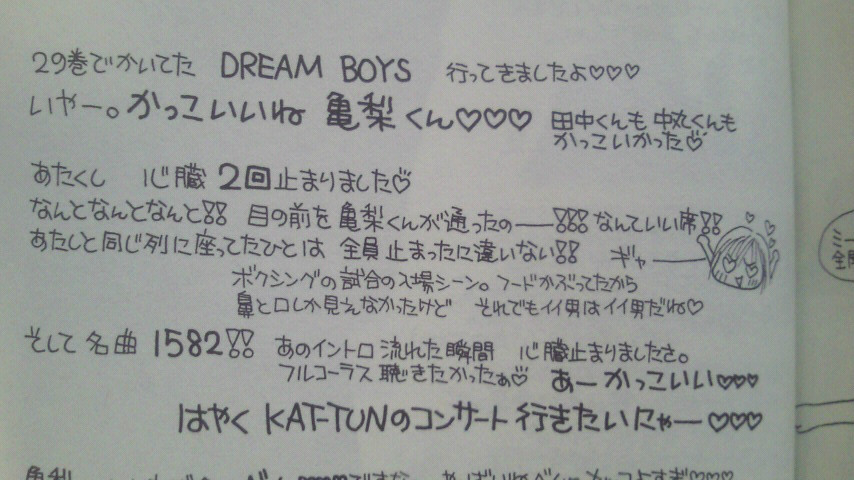 29巻でかいてた DREAM BOYS 行ってきましたよ♡♡♡
いやー。かっこいいね 亀梨くん♡♡♡ 田中くんも 中丸くんも
かっこいかった♡
あたくし 心臓 2回止まりました♡
なんとなんとなんと!! 目の前を亀梨くんが通ったのー!!! なんていい席!!
あたしと同じ列に座ってたひとは 全員止まったに違いない!! ギャー
ボクシングの試合の入場シーン。フードかぶってたから
鼻と口しか見えなかったけど それでもイイ男はイイ男だね♡
そして 名曲 1582!! あのイントロ流れた瞬間 心臓止まりましたさ。
フルコーラス聴きたかったぁ♡ あー かっこいい♡♡♡
はやく KAT-TUNのコンサート 行きたいにゃー♡♡♡